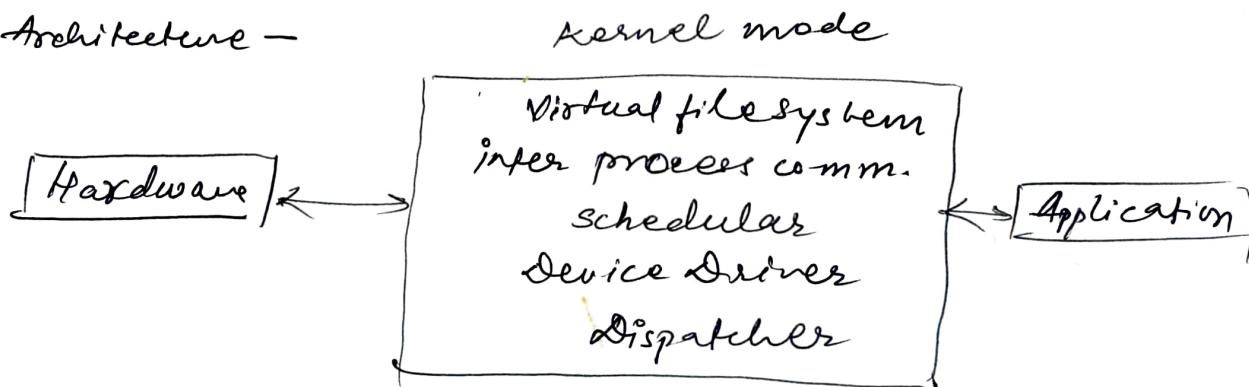 Architecture –
Kernel mode
Virtual filesystem
inter process comm.
schedular
Device Driver
Dispatcher
Hardware
Application